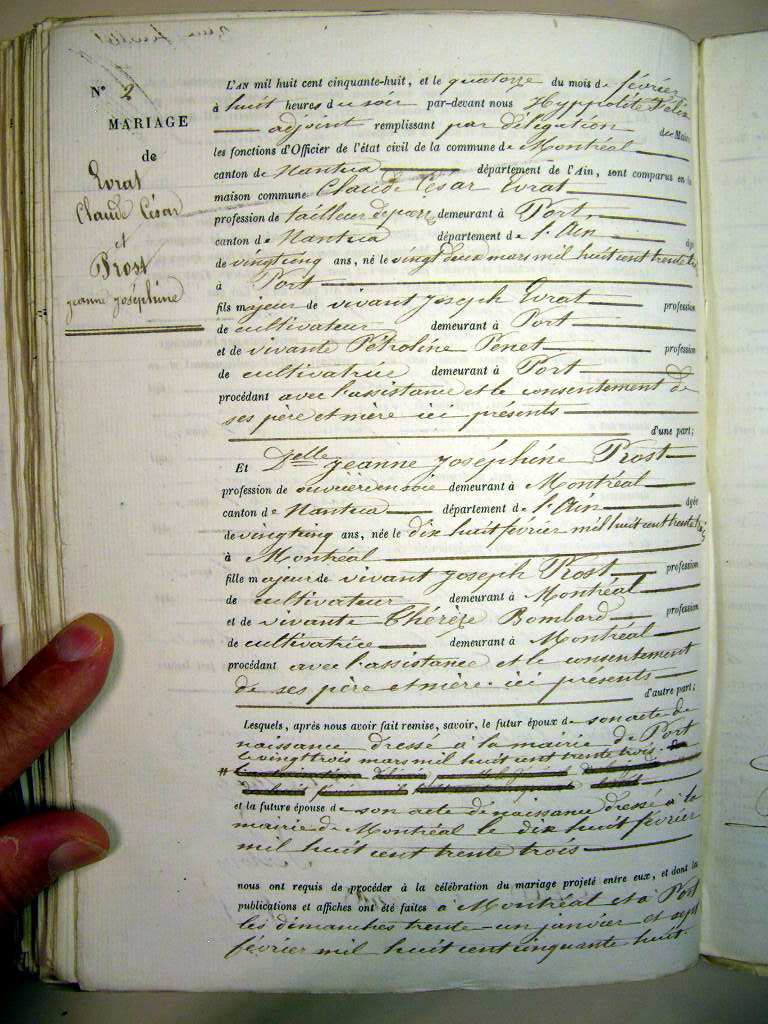 N° 2
MARIAGE
de
Evrat
Claude César
et
Prost
jeanne joséphine
L'AN mil huit cent cinquante-huit, et le quatorze du mois de février
à huit heures du soir par-devant nous Hyppolite Félix
adjoint remplissant par délégation du Maire
les fonctions d'Officier de l'état civil de la commune de Montréal
canton de Nantua département de l'Ain, sont comparus en la
maison commune Claude César Evrat
profession de tailleur de pierres demeurant à Port,
canton de Nantua département de l'Ain âgé
de vingt cinq ans, né le vingt deux mars mil huit cent trente trois
à Port
fils majeur de vivant joseph Evrat profession
de cultivateur demeurant à Port
et de vivante Pétroline Penet profession
de cultivatrice demeurant à Port
procédant avec l'assistance et le consentement de
ses père et mère ici présents
d'une part;
Et Delle jeanne joséphine Prost
profession de ouvrière en soie demeurant à Montréal
canton de Nantua département de l'Ain âgée
de vingt cinq ans, née le dix huit février mil huit cent trente trois
à Montréal
fille majeur de vivant joseph Prost profession
de cultivateur demeurant à Montréal
et de vivante Thérèze Bombard profession
de cultivatrice demeurant à Montréal
procédant avec l'assistance et le consentement
de ses père et mère ici présents
d'autre part;
Lesquels, après nous avoir fait remise, savoir, le futur époux de son acte de
naissance dressé à la mairie de Port
le vingt trois mars mil huit cent trente trois.
et la future épouse de son acte de naissance dressé à la
mairie de Montréal le dix huit février
mil huit cent trente trois
nous ont requis de procéder à la célébration du mariage projeté entre eux, et dont la
publications et affiches ont été faites à Montréal et à Port
les dimanches trente-un janvier et sept
février mil huit cent cinquante huit.